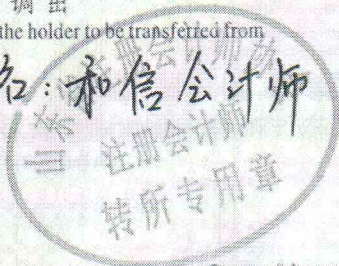 调出
the holder to be transferred from
名:和信会计师
山东
注册会计师
注册会计师
转所专用章